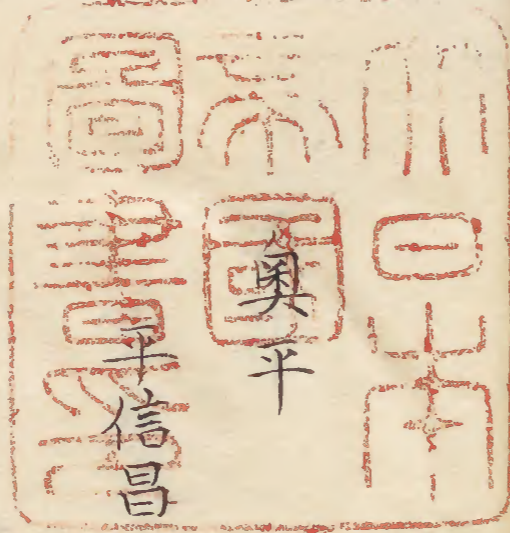 大日本
帝國
圖書印
奥平
平信昌